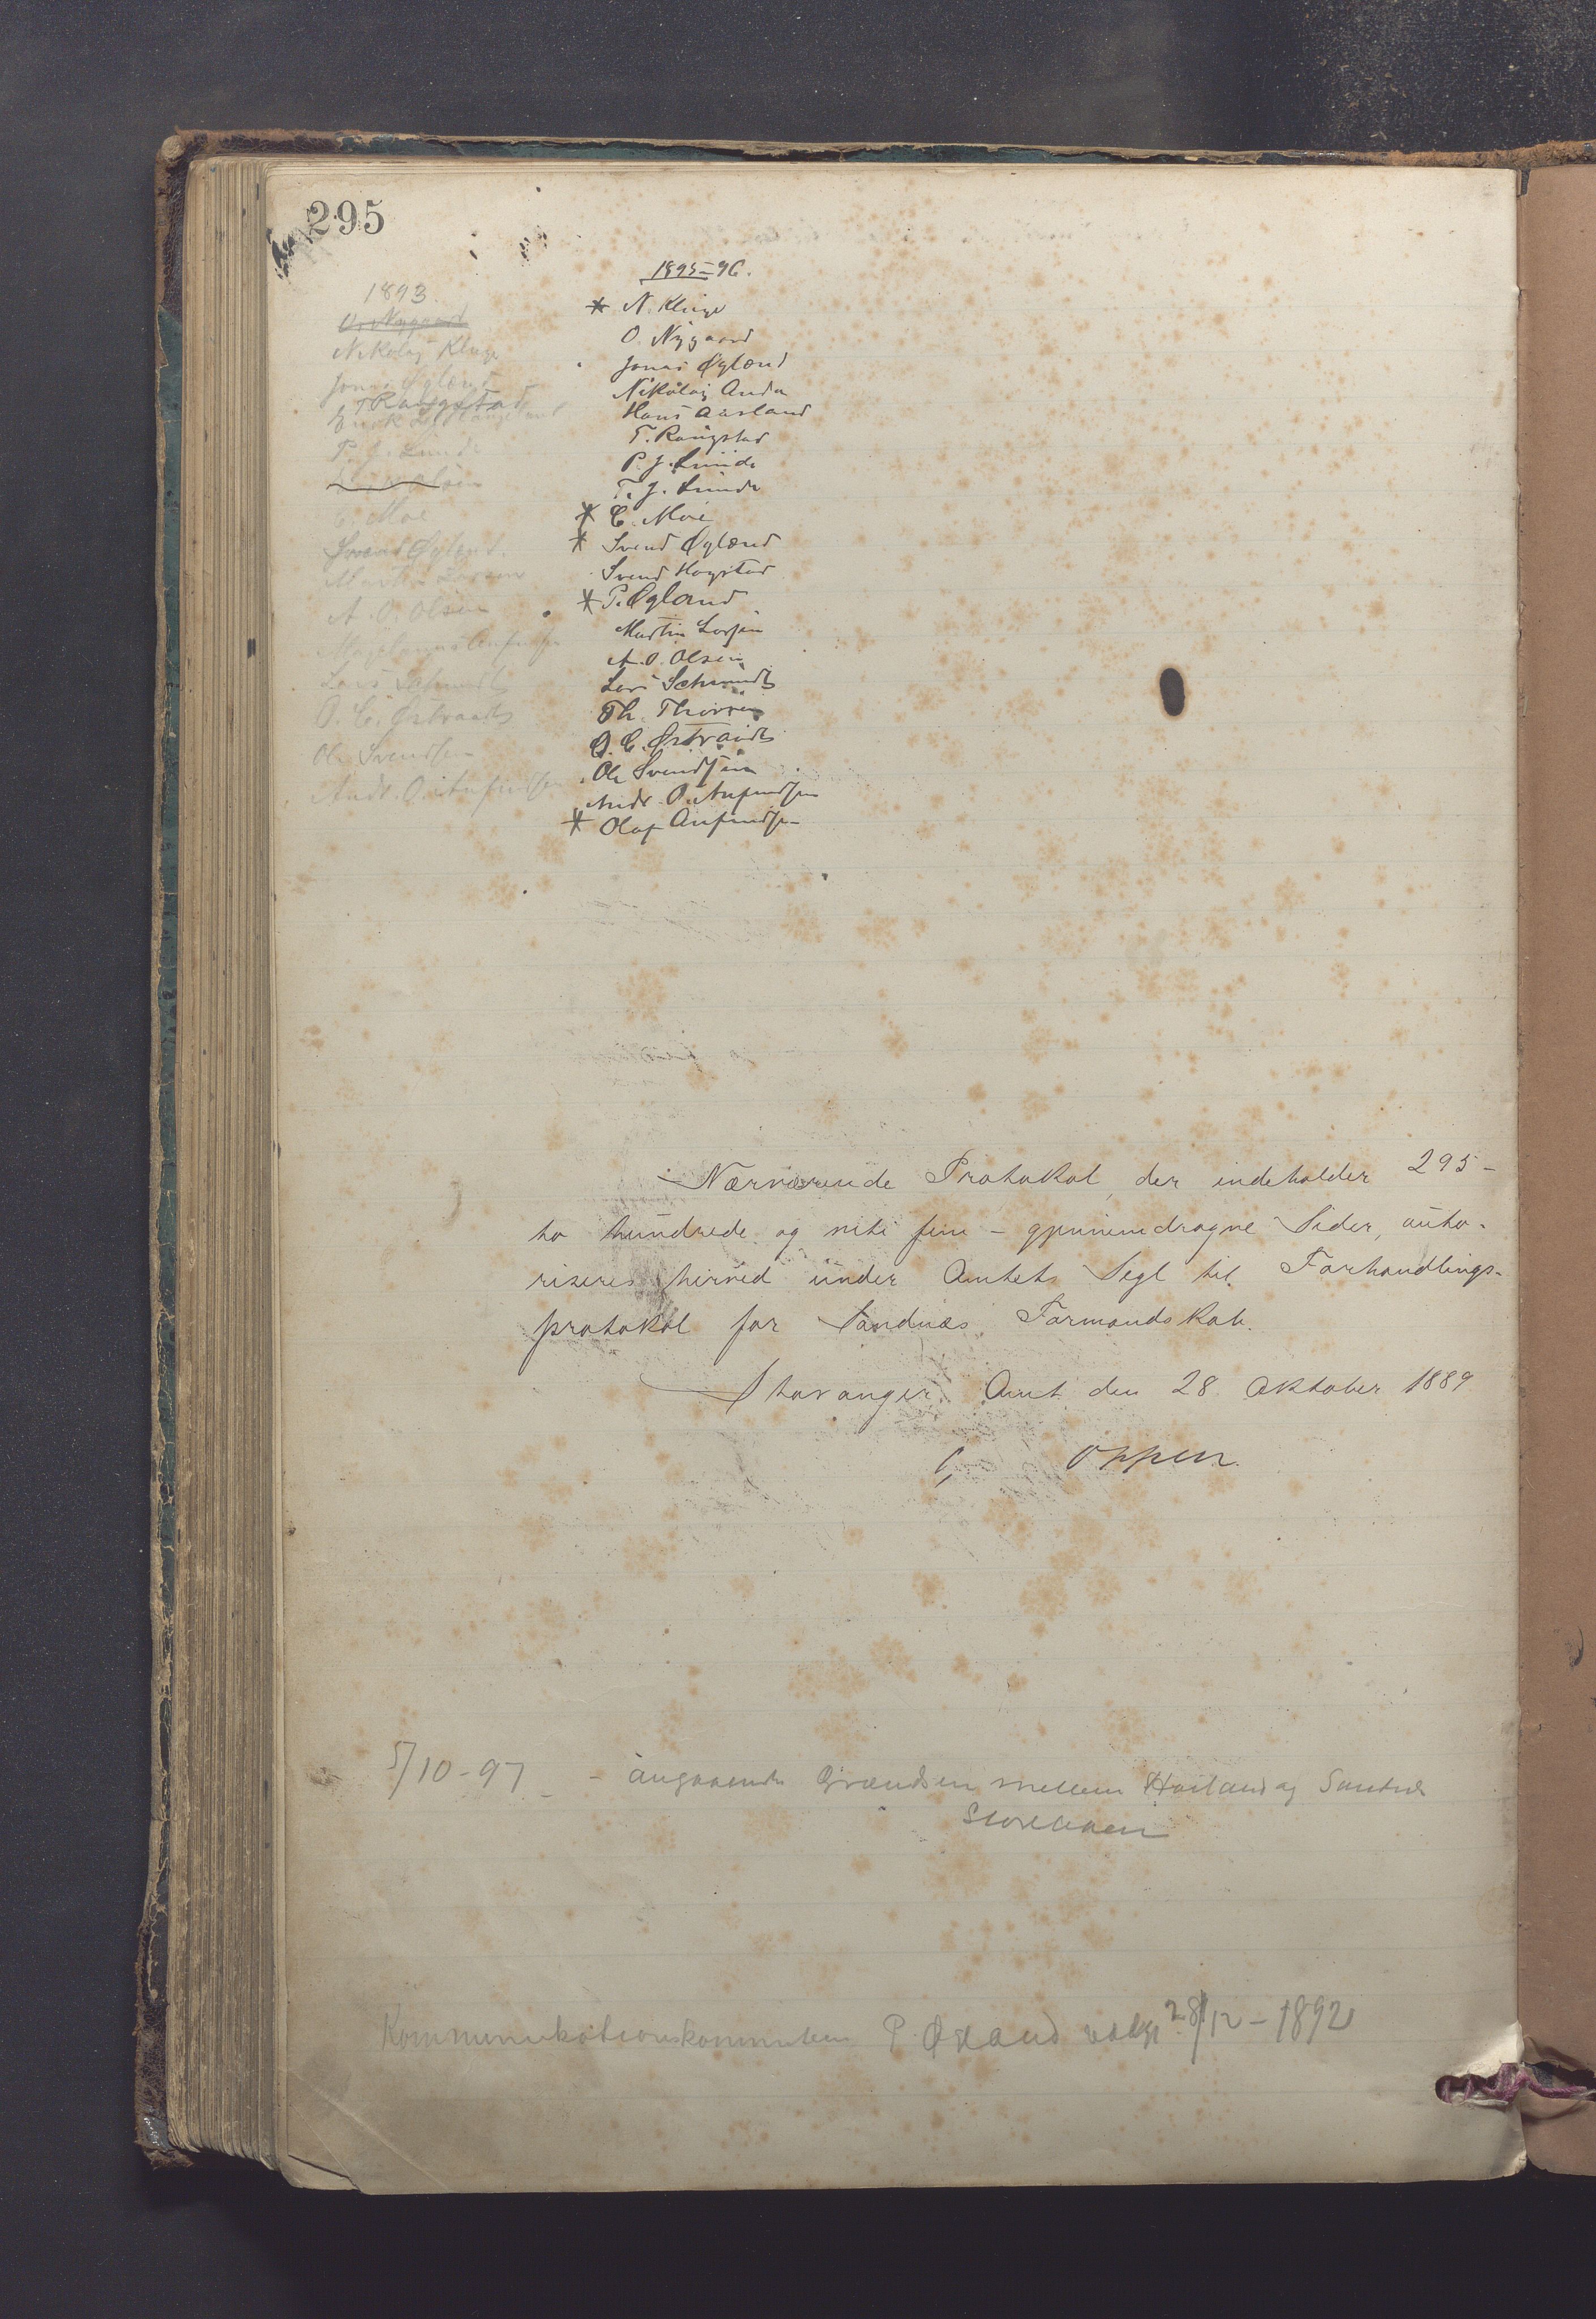 295
1893.
O. Nygaard
Nikolaj Kluge
Jonas Øglænd
T Raugstad
T. J. Lunde
C. Moe
Svend Øglænd.
Martin Larsen
A. O. Olsen
Lars Schmidt
O. C. Østraadt
Ole Svendsen
Andr. O. Anfindsen
1895-96.
* N. Kluge
O. Nygaard
Jonas Øglænd
Nikolaj Anda
Hans Aasland
T. Raugstad
P. J. Lunde
T. J. Lunde
* C. Moe
* Svend Øglænd
Svend Hogstad
* P. Øgland
Martin Larsen
A. O. Olsen
Lars Schmidt
Th. Thorsen
O. C. Østraadt
Ole Svendsen
Andr. O. Anfindsen
* Olaf Anfindsen
Nærværende Protokol, der indeholder 295 -
to hundrede og niti fem - gjennemdragne Sider, auto-
riseres herved under Amtets Segl til Forhandlings-
protokol for Sandnæs Formandskab.
Stavanger Amt den 28 Oktober 1889
Oppen.
5/10-97 - angaaende Grændsen mellem Høiland og Sandnes
Kommunikationskomiteen P. Øgland valgt 28/12-1892